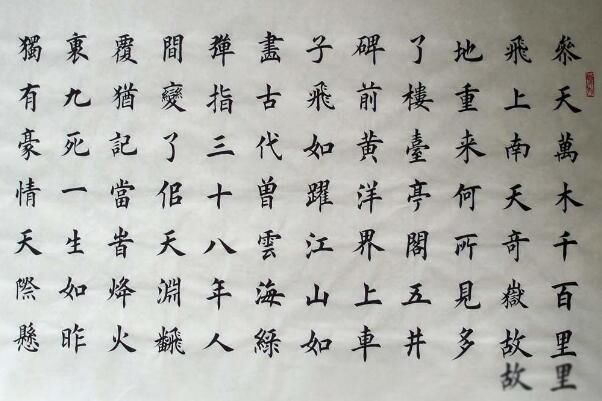 叅天萬木千百里里
飛上南天奇嶽故故
地重来何所見多
了樓臺亭閣五井
碑前黄洋界上車
子飛如躍江山如
畫古代曾雲海緑
彈指三十八年人
間變了佀天淵飜
覆猶記當旹烽火
裏九死一生如昨
獨有豪情天際懸